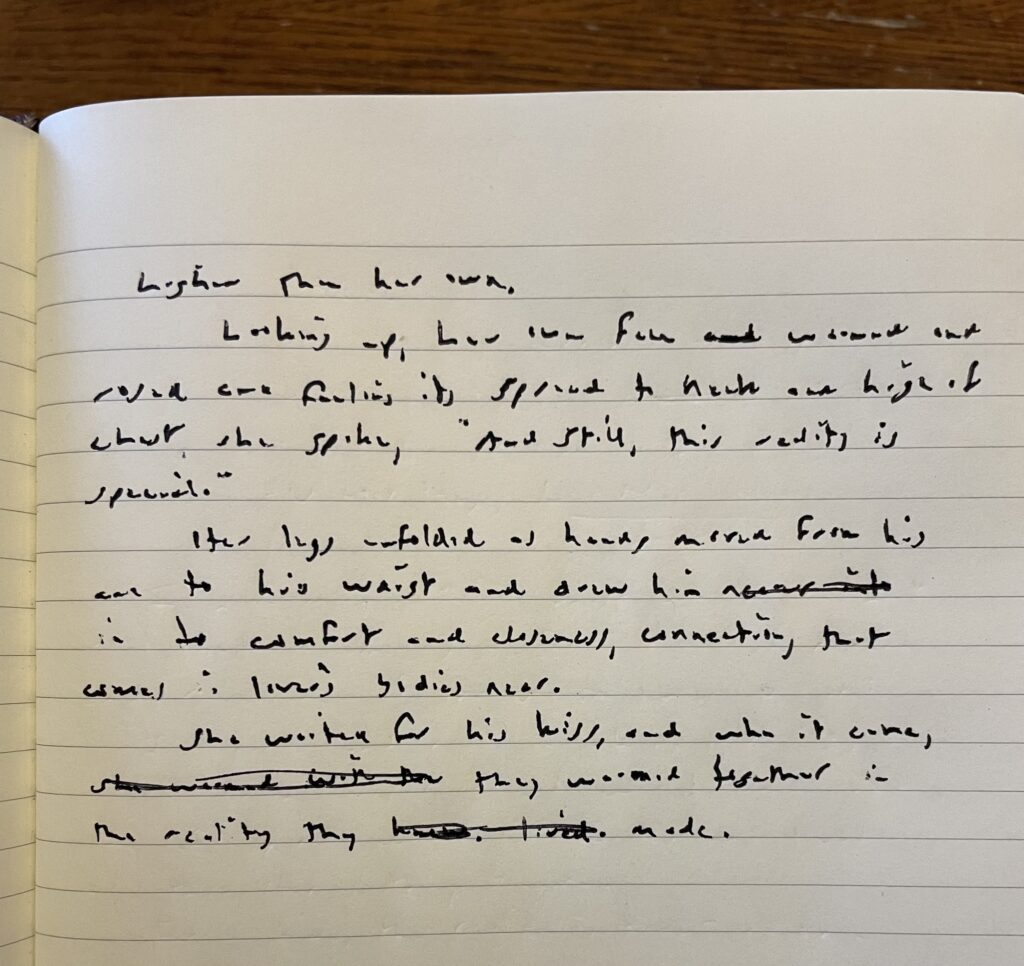 higher than her own.
Looking up, her own face and warmed and
rosed and feeling its spread to neck and high of
chest, she spoke, "And still, this reality is
special."
Her legs unfolded as hands moved from his
arm to his waist and drew him near into
in to comfort and closeness, connection, that
comes in lovers bodies near.
She waited for his kiss, and when it came,
she warmed with the they warmed together in
the reality they knew. lived. made.